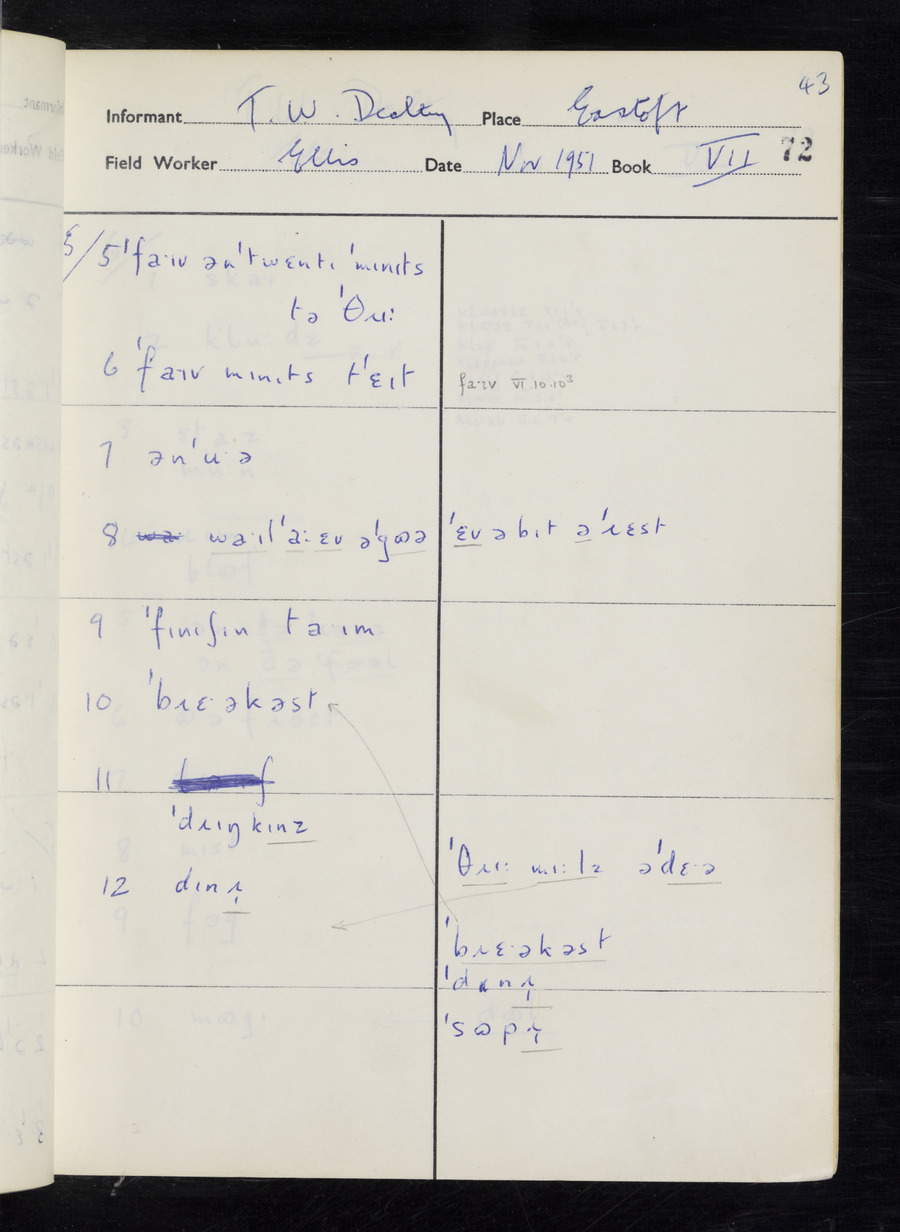 43
Informant T. W. Dealtry Place Eastoft
Field Worker Ellis Date Nov 1951 Book VII 72
5 ˈfaːɪv ənˈtwɛntɪ ˈmɪnɪts
tə ˈθɹɪː
6 ˈfaɪv mɪnɪts tˈɛɪt
faːɪv VI.10.10³
7 ənˈuˑə
8 waɪlˈaːɛv əˈgɷə
ˈɛv ə bɪt əˈɹɛst
9 ˈfɪnɪʃɪn taɪm
10 ˈbɹɛˑəkəst
11
ˈdɹɪŋkɪnz
ˈθɹɪː mɪːlz əˈdɛˑə
12 dɪnɪ̢
ˈbɹɛˑəkəst
ˈdɪnɪ̢
ˈsɷpɪ̢